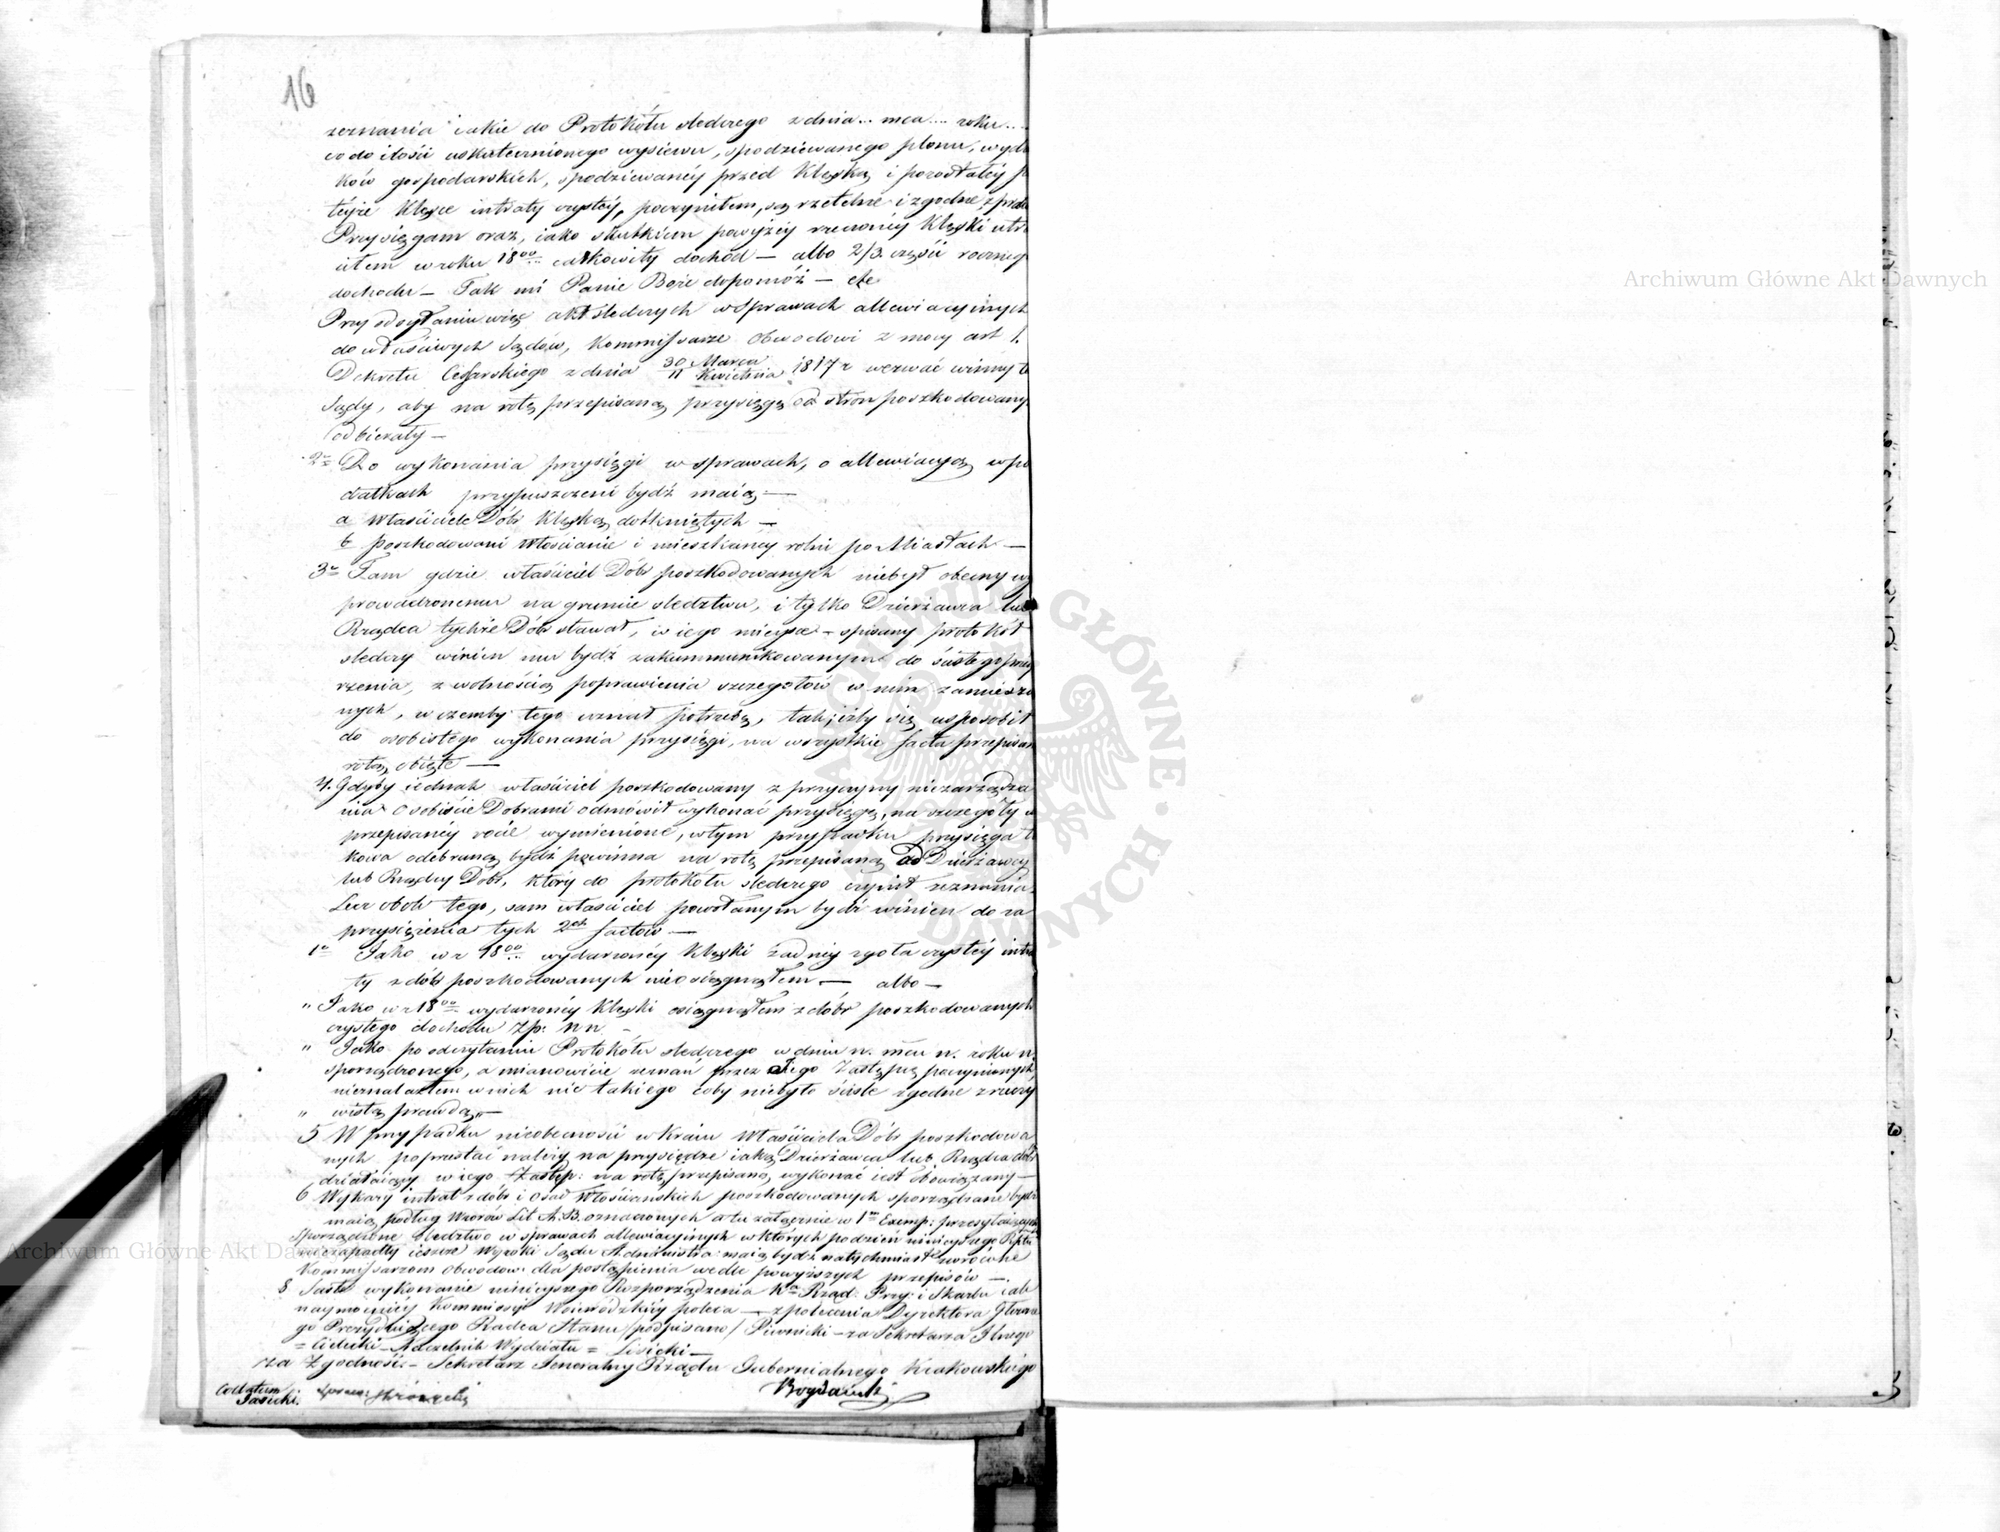 16
zeznania iakie do Protokółu śledczego z dnia... mca.... roku....
co do ilości uskutecznionego wysiewu, spodziewanego plonu, wyda
ków gospodarskich, spodziewanéy przed Klęską i pozostałéy p
téyże Klęsce intraty czystéy, poczyniłem, są rzetelne i zgodne z praw
Przysięgam oraz, iako skutkiem powyżéy rzeczonéy Klęski utra
ciłem w roku 18.. całkowity dochód — albo 2/3 części roczneg
dochodu — Tak mi Panie Boże dopomóż — etc
Przy odsyłaniu więc akt śledczych w Sprawach allewiacyinych
do właściwych Sądów, Kommissarze Obwodowi z mocy art 1.
Dekretu Cesarskiego z dnia 30 Marca / 11 Kwietnia 1817 r wezwać winny t
Sądy, aby na rotę przepisaną przysięgę od stron poszkodowany
odbierały —
2. Do wykonania przysięgi w sprawach, o allewiacyą w po
datkach przypuszczeni bydź maią —
a Właściciele Dóbr Klęską dotkniętych —
b poszkodowani Włościanie i mieszkańcy rolni po Miastach —
3. Tam gdzie właściciel Dóbr poszkodowanych niebył obecny w
prowadzonemu na gruncie śledztwu, i tylko Dzierżawca lub
Rządca tychże Dóbr stawał, w iego mieysce spisany protokół
śledczy winien mu bydź zakommunikowanym do ścisłego przey
rzenia, z wolnością poprawienia szczegółów w nim zamieszczo
nych, w czemby tego uznał potrzebę, tak, iżby się usposobił
do osobistego wykonania przysięgi, na wszystkie facta przepisan
rotą obięte —
4. Gdyby iednak właściciel poszkodowany z przyczyny niezarządza
nia osobiście Dobrami odmówił wykonać przysięgę, na szczegóły w
przepisanéy rocie wymienione, w tym przypadku przysięga ta
kowa odebraną bydź powinna na rotę przepisaną od Dzierżawcy
lub Rządcy Dóbr, który do protokółu śledczego czynił zeznania
Lecz obok tego, sam właściciel powołanym bydź winien do za
przysiężenia tych 2ch factów —
1e Jako w r 18.. wydarzonéy Klęski żadnéy zgoła czystéy intra
ty z dóbr poszkodowanych nieosiągnąłem — albo —
" Jako w r 18.. wydarzonéy Klęski osiągnąłem z dóbr poszkodowanych
czystego dochodu Zp: nn —
" Jako po odczytaniu Protokółu śledczego w dniu n. mca n. roku n.
sporządzonego, a mianowicie zeznań przez Jego Zastępcę poczynionych,
nieznalazłem w nich nic takiego coby niebyło ściśle zgodne z rzeczy
" wistą prawdą" —
5 W przypadku nieobecności w Kraiu Właściciela Dóbr poszkodowa
nych poprzestać należy na przysiędze iaką Dzierżawca lub Rządca dóbr
działaiący w iego Zastęp: na rotę przepisaną wykonać iest obowiązany —
6 Wykazy intrat z dóbr i osad Włościańskich poszkodowanych sporządzane bydź
maią podług Wzorów Lit A. B. oznaczonych a tu załącznie w 1m Exemp: przesyłaiących
Sporządzone śledztwo w sprawach allewiacyinych w których podzień ninieyszego Rptu
niezapadły ieszcze Wyroki Sądu Administra: maią bydź natychmiast zwrócone
Kommissarzom Obwodow: dla postąpienia wedle powyższych przepisów —
8 Ścisłe wykonanie ninieyszego Rozporządzenia Ka Rząd: Przy: i Skarbu iak
naymocniéy Kommissyi Woiewódzkiéy poleca — z polecenia Dyrektora Główne
go Prezyduiącego Radca Stanu /podpisano/ Piwnicki — za Sekretarza Jlnego
= Cielecki — Naczelnik Wydziału = Lisicki —
za Zgodność — Sekretarz Jeneralny Rządu Gubernialnego Krakowskiego
Collatum
Jasicki.
Archiwum Główne Akt Dawnych
Archiwum Główne Akt Dawnych
ARCHIWUM GŁÓWNE AKT DAWNYCH